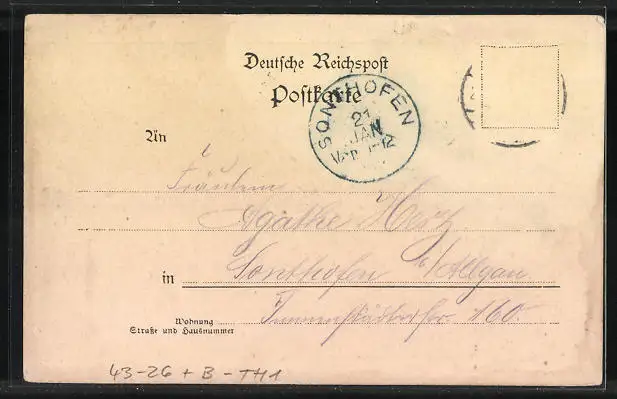 Deutsche Reichspost
Postkarte
SONTHOFEN
21
JAN
An
Fräulein
Agathe Herz
in Sonthofen b/Allgäu
Wohnung
Straße und Hausnummer
Immenstädterstr. 160.
43-26 + B - TH1